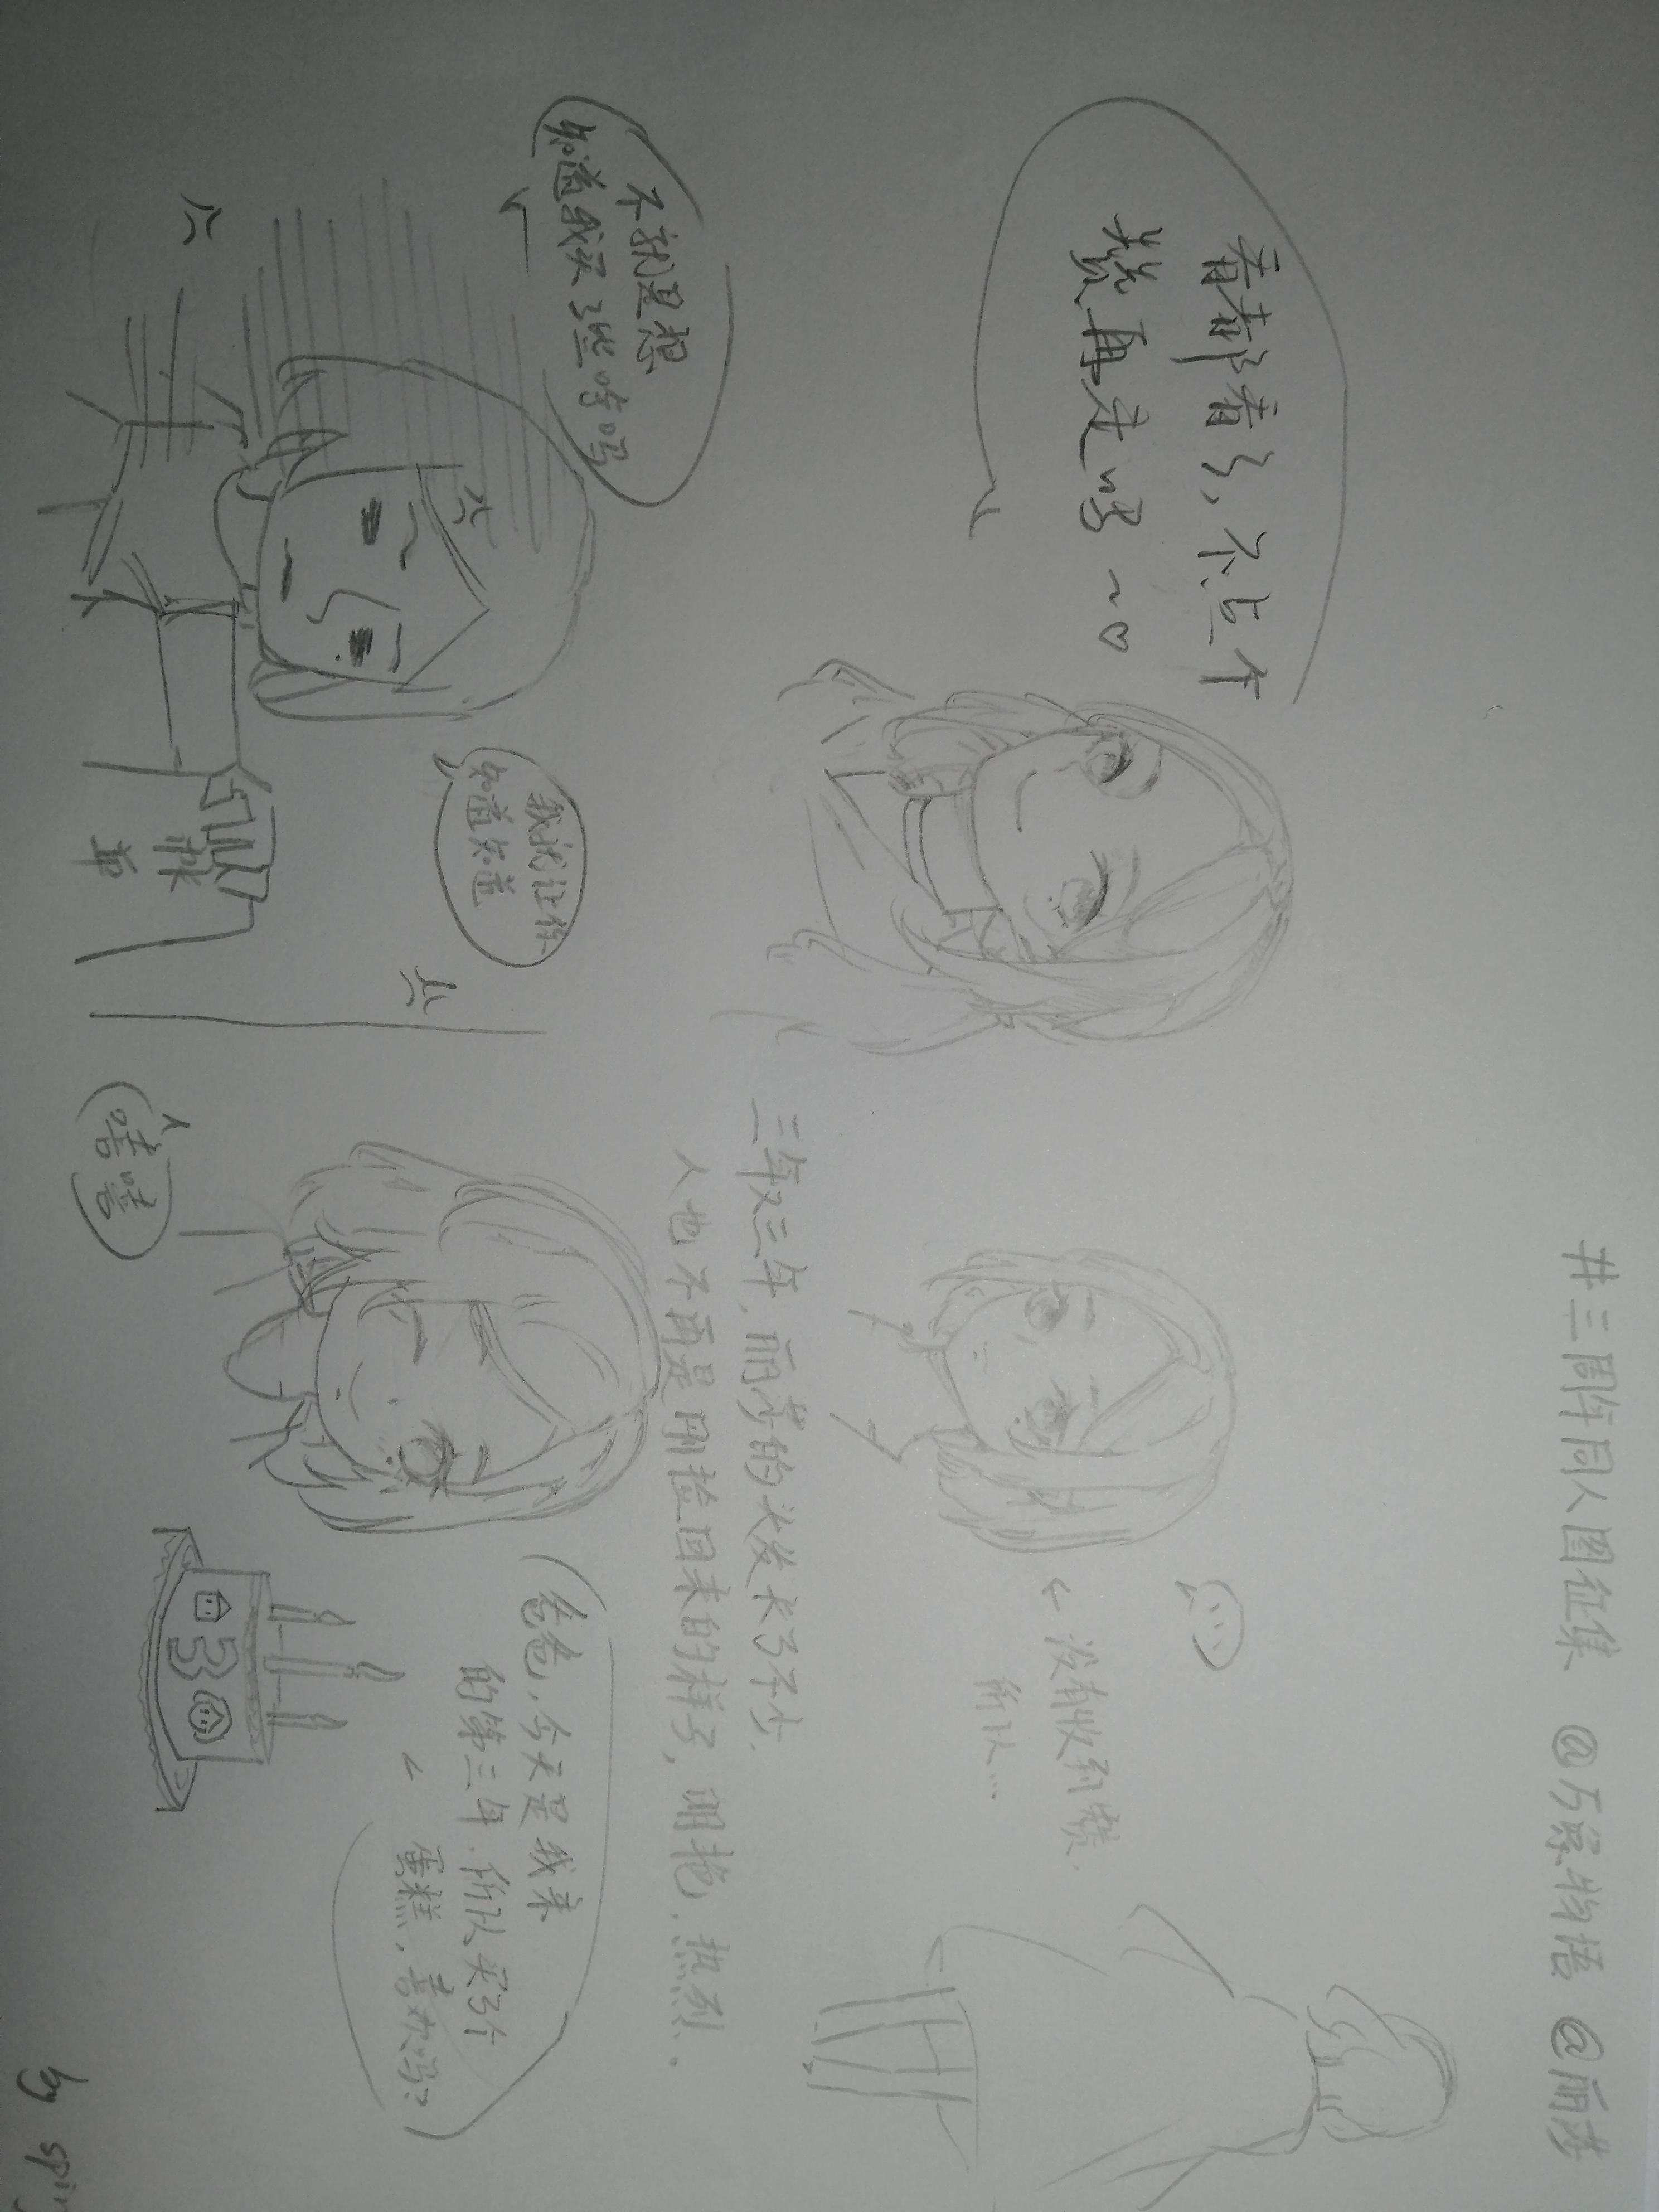 #三周年同人图征集 @万象物语 @丽莎
看都看了,不点个
赞再走吗~♡
← 没有收到赞,
所以…
三年又三年,丽莎的头发长了不少,
人也不再是刚捡回来的样子,明艳,热烈。
不就是想
知道我买了些啥吗
我就让你
知道知道
账
单
嘻嘻
爸爸,今天是我来
的第三年,所以买了个
蛋糕,喜欢吗?
3
by spi